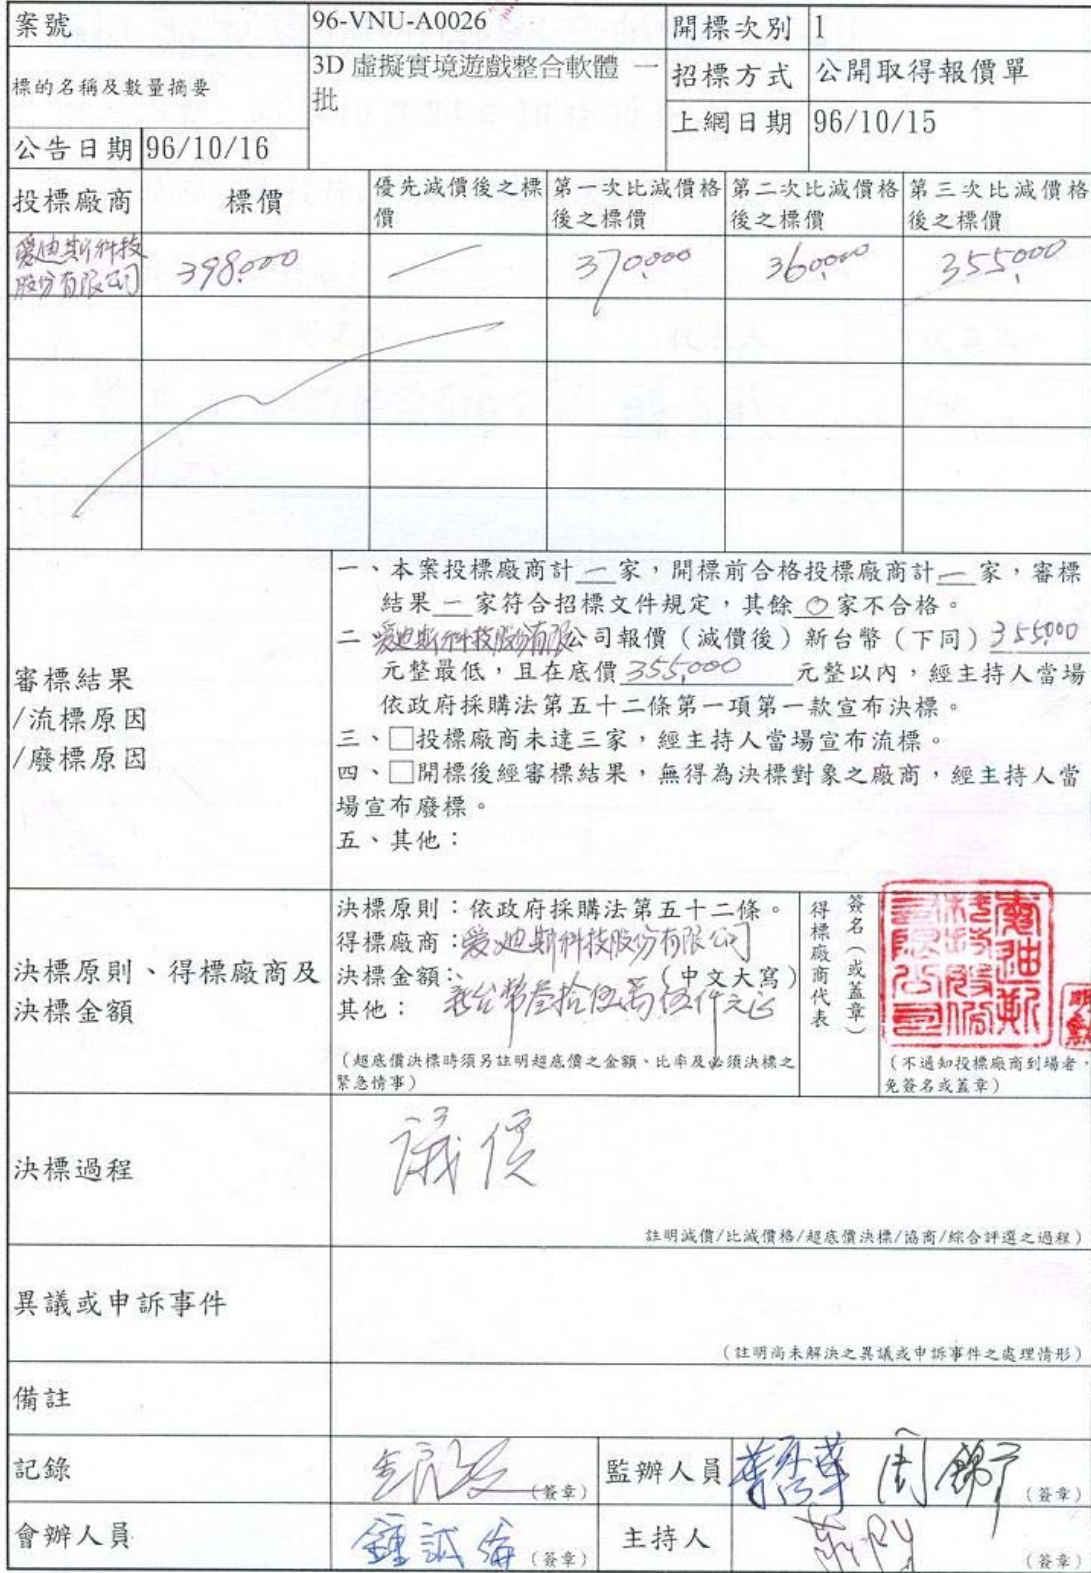 案號 96-VNU-A0026 開標次別 1
標的名稱及數量摘要 3D 虛擬實境遊戲整合軟體 一
批
招標方式 公開取得報價單
上網日期 96/10/15
公告日期 96/10/16
投標廠商 標價 優先減價後之標
價
第一次比減價格
後之標價
第二次比減價格
後之標價
第三次比減價格
後之標價
愛迪斯科技
股份有限公司
398,000 — 370,000 360,000 355,000
審標結果
/流標原因
/廢標原因
一、本案投標廠商計 一 家,開標前合格投標廠商計 一 家,審標
結果 一 家符合招標文件規定,其餘 0 家不合格。
二 愛迪斯科技股份有限公司報價(減價後)新台幣(下同)355,000
元整最低,且在底價 355,000 元整以內,經主持人當場
依政府採購法第五十二條第一項第一款宣布決標。
三、□投標廠商未達三家,經主持人當場宣布流標。
四、□開標後經審標結果,無得為決標對象之廠商,經主持人當
場宣布廢標。
五、其他:
決標原則、得標廠商及
決標金額
決標原則:依政府採購法第五十二條。
得標廠商:愛迪斯科技股份有限公司
決標金額: (中文大寫)
其他: 新台幣叁拾伍萬伍仟元正
(超底價決標時須另註明超底價之金額、比率及必須決標之
緊急情事)
得標廠商代表
簽名(或蓋章)
愛迪斯
科技股份
有限公司
(不通知投標廠商到場者,
免簽名或蓋章)
決標過程
議價
註明減價/比減價格/超底價決標/協商/綜合評選之過程)
異議或申訴事件
(註明尚未解決之異議或申訴事件之處理情形)
備註
記錄 (簽章) 監辦人員 (簽章)
會辦人員 鍾誠倫 (簽章) 主持人 (簽章)